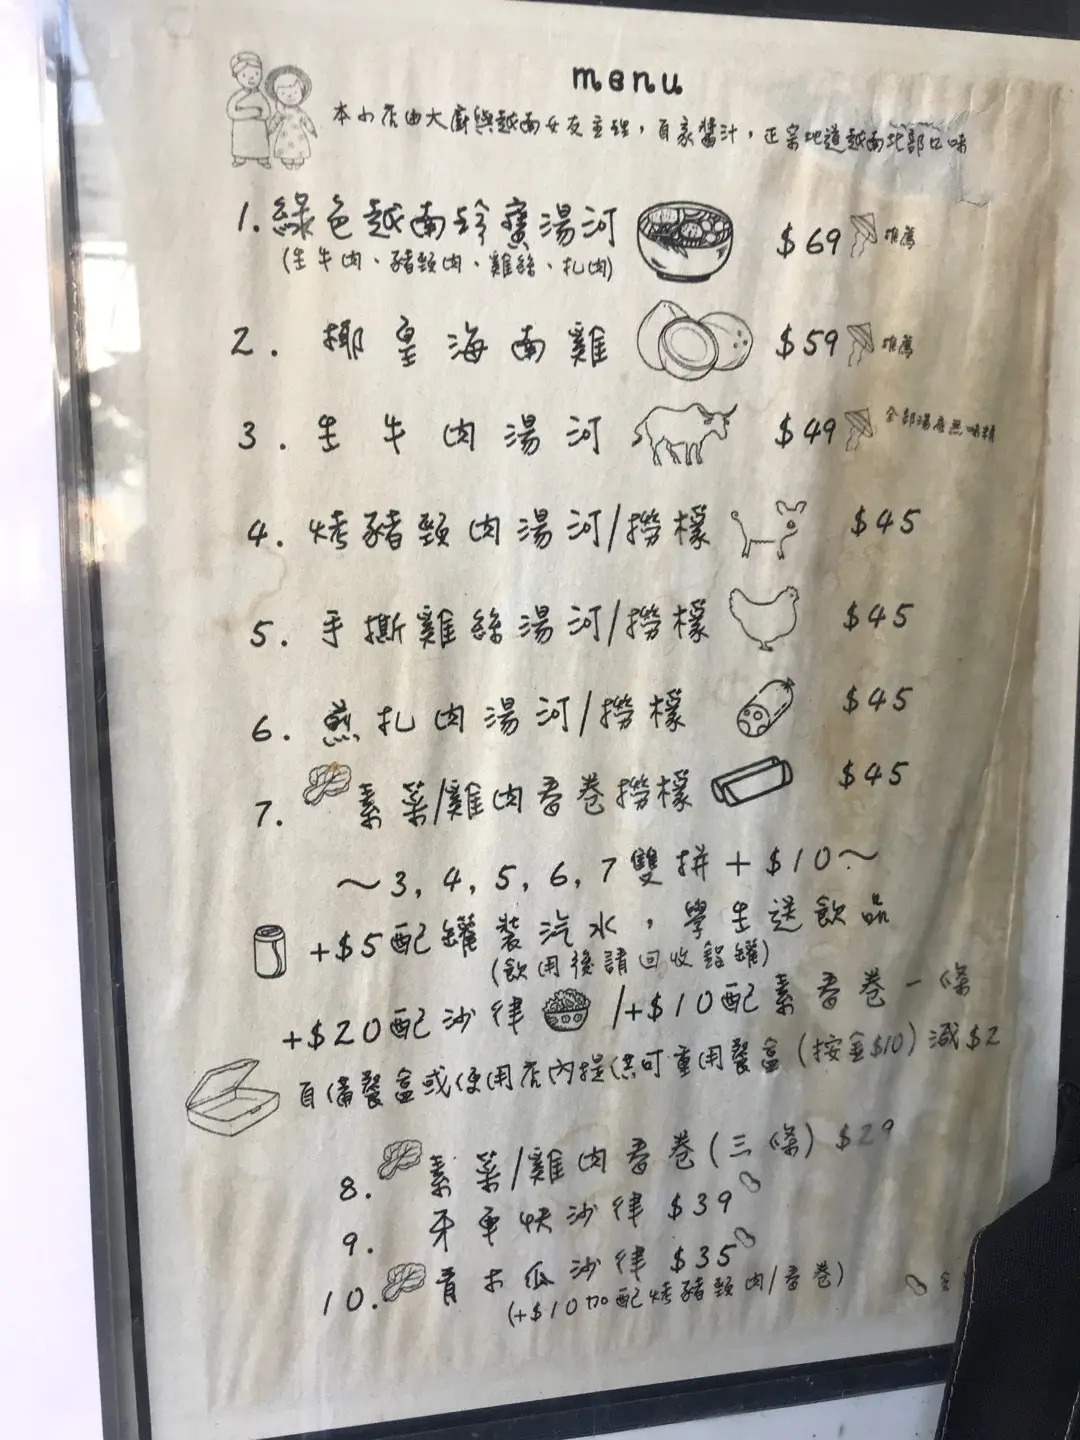 menu
本小店由大廚與越南女友主理，自家醬汁，正宗地道越南北部口味
1. 綠色越南珍寶湯河 $69 推薦
(生牛肉、豬頸肉、雞絲、扎肉)
2. 椰皇海南雞 $59 推薦
3. 生牛肉湯河 $49 全部湯底無味精
4. 烤豬頸肉湯河/撈檬 $45
5. 手撕雞絲湯河/撈檬 $45
6. 煎扎肉湯河/撈檬 $45
7. 素菜/雞肉春卷撈檬 $45
～3, 4, 5, 6, 7雙拼+$10～
+$5配罐裝汽水，學生送飲品
(飲用後請回收鋁罐)
+$20配沙律/+$10配素春卷一條
自備餐盒或使用店內提供可重用餐盒(按金$10)減$2
8. 素菜/雞肉春卷(三條) $29
9. 牙車快沙律 $39
10. 青木瓜沙律 $35
(+$10加配烤豬頸肉/春卷)